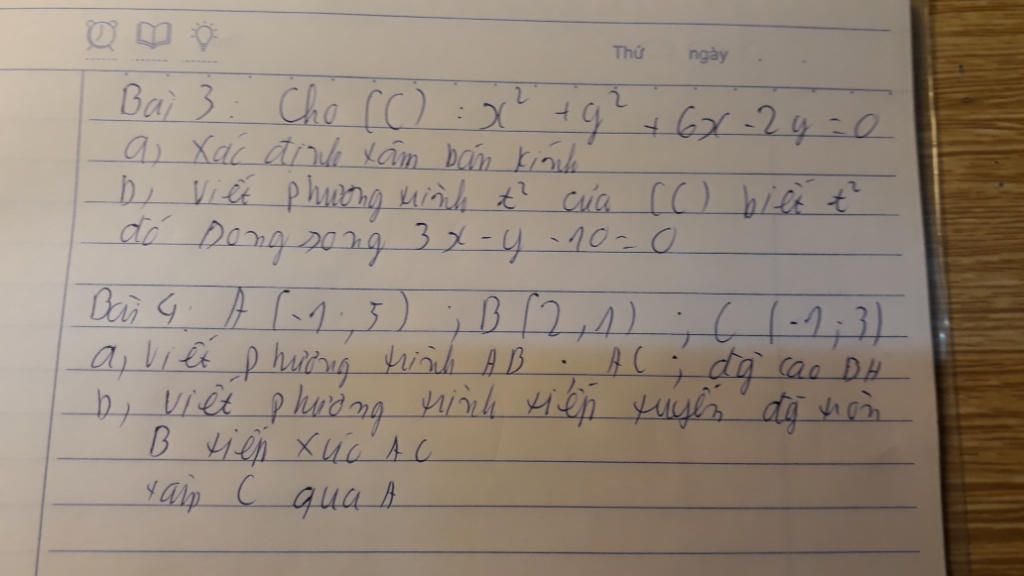 Thứ ngày
Bài 3: Cho (C) : x² + y² + 6x - 2y = 0
a, Xác định tâm bán kính
b, Viết phương trình t² của (C) biết t²
đó song song 3x - y - 10 = 0
Bài 4: A (-1; 5) ; B (2, 1) ; C (-1; 3)
a, Viết phương trình AB . AC ; đg cao BH
b, Viết phương trình tiếp tuyến đg tròn
B tiếp xúc AC
tâm C qua A